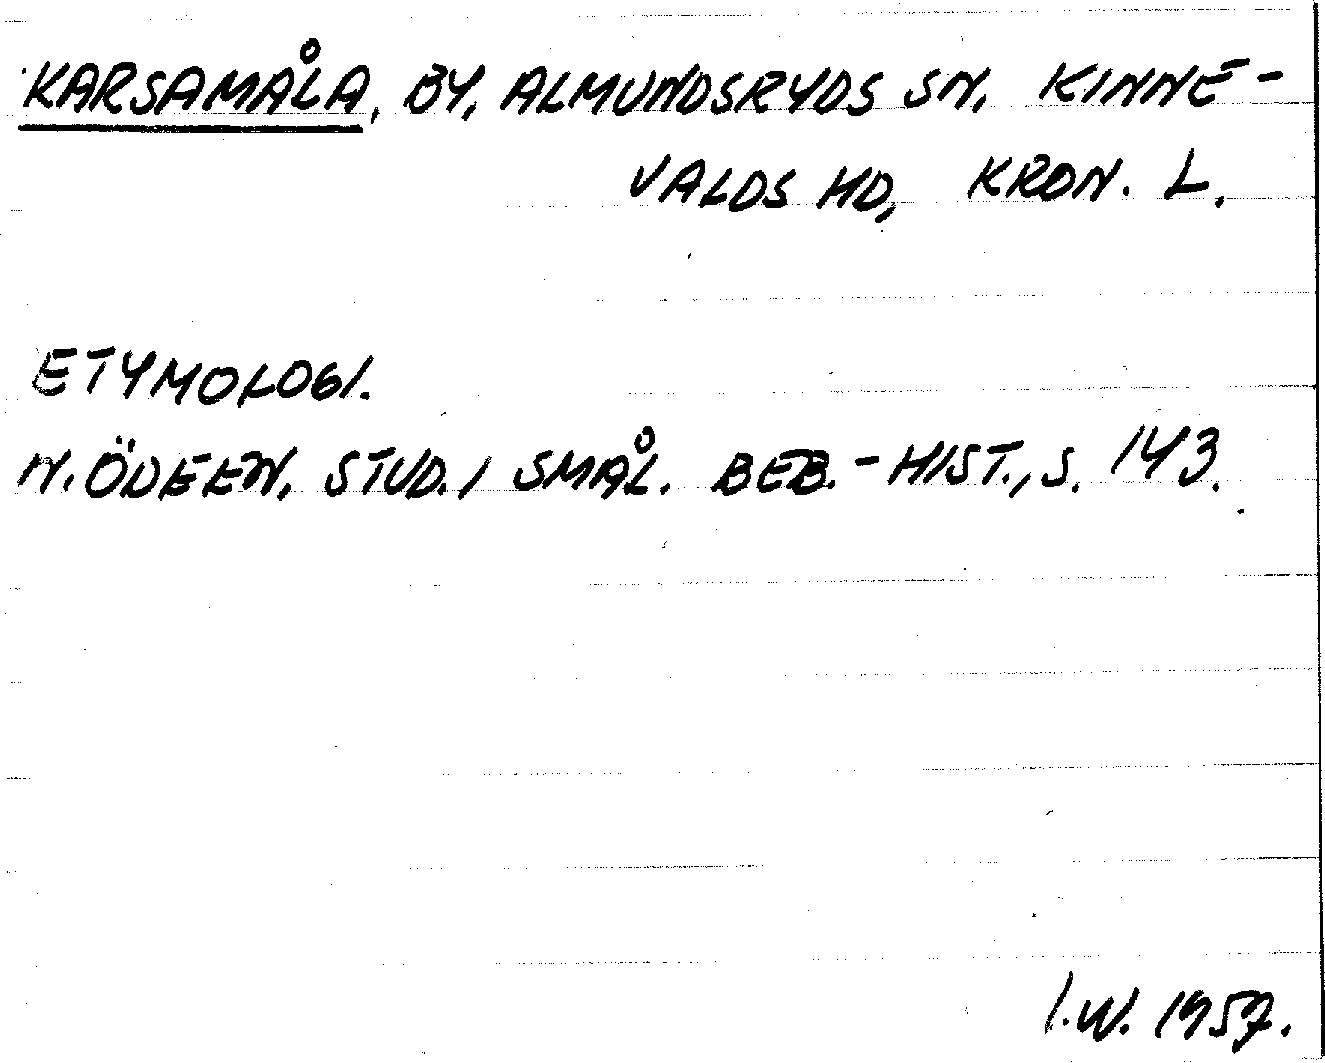 KARSAMÅLA, BY, ALMUNDSRYDS SN, KINNE-
VALDS HD, KRON. L.
ETYMOLOGI.
N. ÖDEEN, STUD. I SMÅL. BEB.-HIST., S. 143.
I.W. 1957.